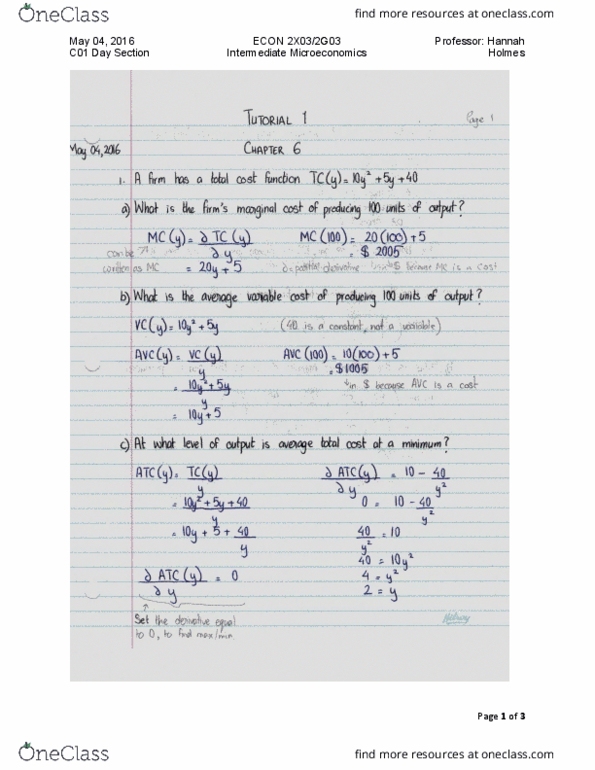 OneClass
find more resources at oneclass.com
May 04, 2016 ECON 2X03/2G03 Professor: Hannah
C01 Day Section Intermediate Microeconomics Holmes
TUTORIAL 1 Page 1
May 04, 2016 CHAPTER 6
1. A firm has a total cost function TC(y) = 10y² + 5y + 40
a) What is the firm's marginal cost of producing 100 units of output?
MC(y) = ∂ TC (y) MC (100) = 20(100) + 5
∂ y = $ 2005
can be
written as MC = 20y + 5 ∂ = partial derivative in $ because MC is a cost
b) What is the average variable cost of producing 100 units of output?
VC(y) = 10y² + 5y (40 is a constant, not a variable)
AVC(y) = VC(y) AVC (100) = 10(100) + 5
y = $1005
= 10y² + 5y in $ because AVC is a cost
y
= 10y + 5
c) At what level of output is average total cost at a minimum?
ATC(y) = TC(y) ∂ ATC(y) = 10 - 40
y ∂ y y²
= 10y² + 5y + 40 0 = 10 - 40
y y²
= 10y + 5 + 40 40 = 10
y y²
40 = 10y²
∂ ATC(y) = 0 4 = y²
∂ y 2 = y
Set the derivative equal
to 0, to find max/min.
Hilroy
Page 1 of 3
OneClass
find more resources at oneclass.com